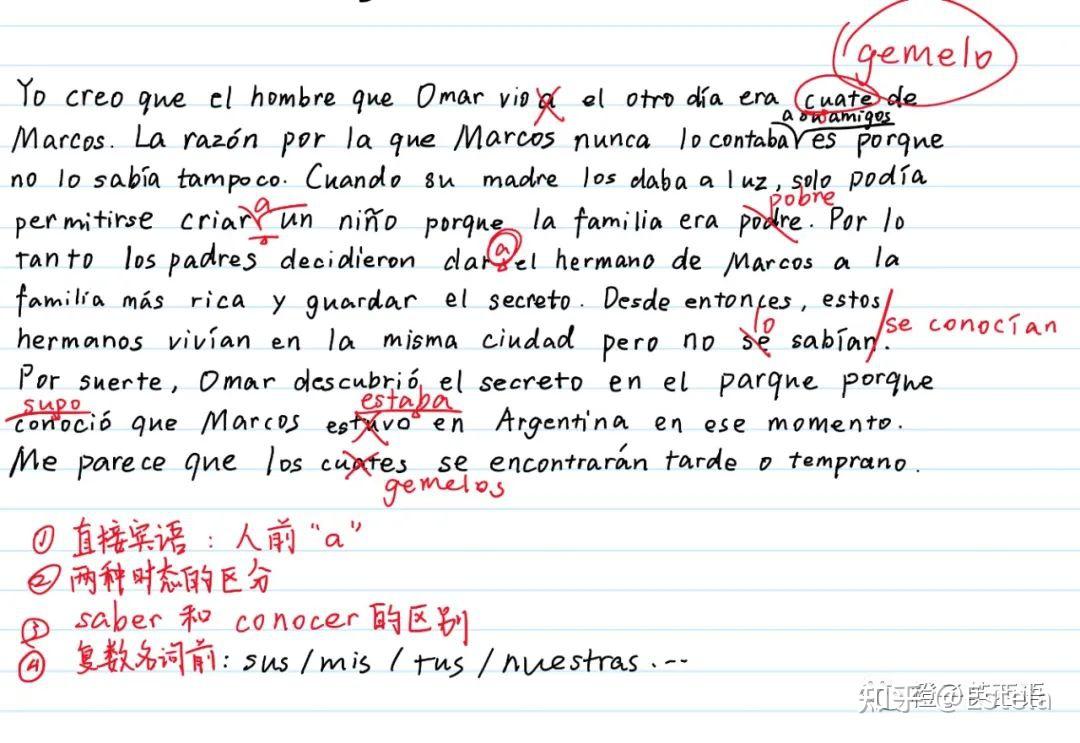 gemelo
Yo creo que el hombre que Omar vio a el otro día era cuate de
a sus amigos
Marcos. La razón por la que Marcos nunca lo contaba es porque
no lo sabía tampoco. Cuando su madre los daba a luz, solo podía
a pobre
permitirse criar un niño porque la familia era podre. Por lo
a
tanto los padres decidieron dar el hermano de Marcos a la
familia más rica y guardar el secreto. Desde entonces, estos
lo se conocían
hermanos vivían en la misma ciudad pero no se sabían.
Por suerte, Omar descubrió el secreto en el parque porque
supo estaba
conoció que Marcos estuvo en Argentina en ese momento.
Me parece que los cuates se encontrarán tarde o temprano.
gemelos
① 直接宾语：人前 "a"
② 两种时态的区分
③ saber 和 conocer 的区别
④ 复数名词前：sus / mis / tus / nuestras ...
知乎 @Estela